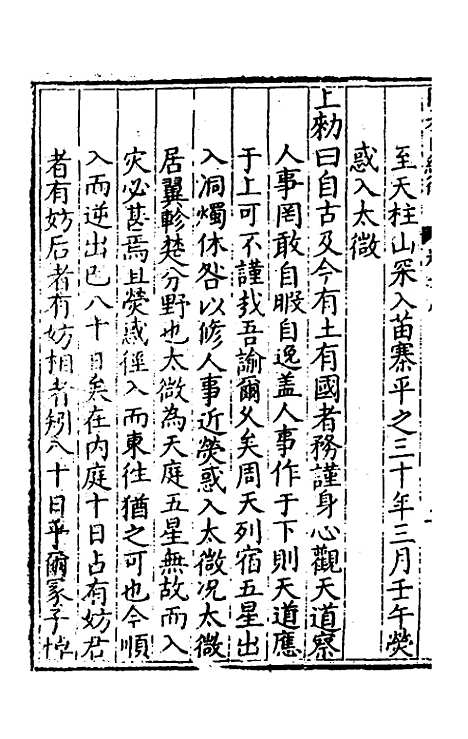 至天柱山罙入苗寨平之三十年三月壬午熒
惑入太微
上勑曰自古及今有土有國者務謹身心觀天道察
人事罔敢自暇自逸盖人事作于下則天道應
于上可不謹㢤吾諭爾乆矣周天列宿五星出
入洞燭休咎以修人事近熒惑入太微况太微
居翼軫楚分野也太微為天庭五星無故而入
灾必甚焉且熒惑徑入而東往猶之可也今順
入而逆出已八十日矣在内庭十日占有妨君
者有妨后者有妨相者矧八十日乎爾冢子悼